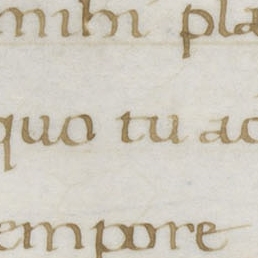 mihi pla
quo tu ad
empore